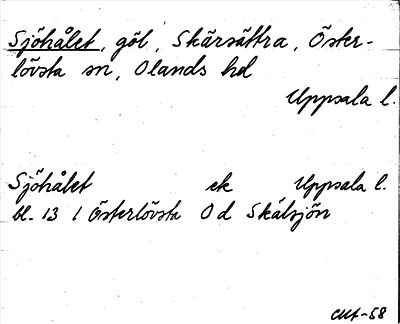 Sjöhålet, göl, Skärsättra, Öster-
lövsta sn, Olands hd
Uppsala l.
Sjöhålet ek Uppsala l.
bl. 13 I Österlövsta O d Skälsjön